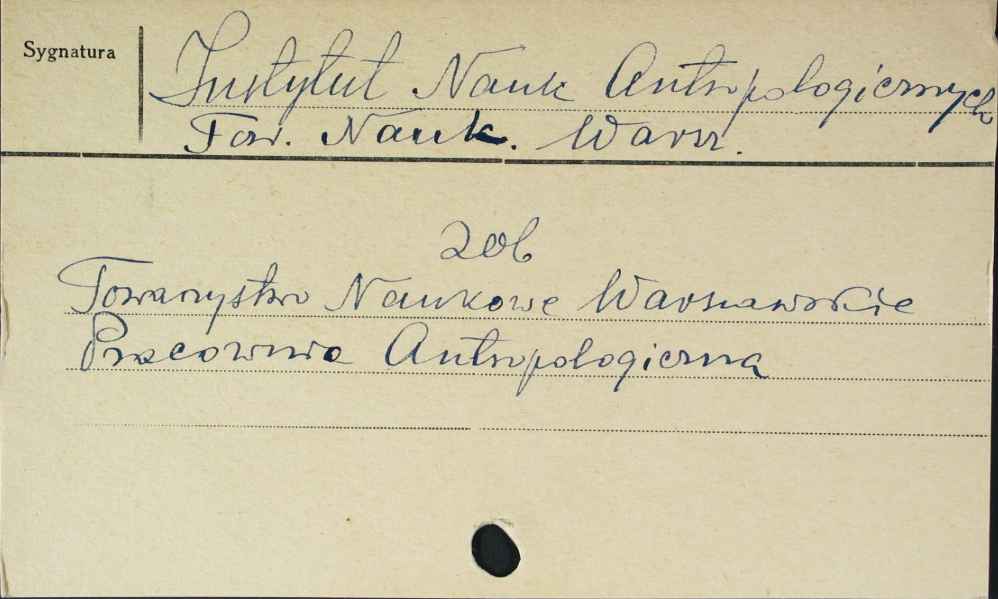 Sygnatura
Instytut Nauk Antropologicznych
Tow. Nauk. Warsz.
zob
Towarzystwo Naukowe Warszawskie
Pracownia Antropologiczna